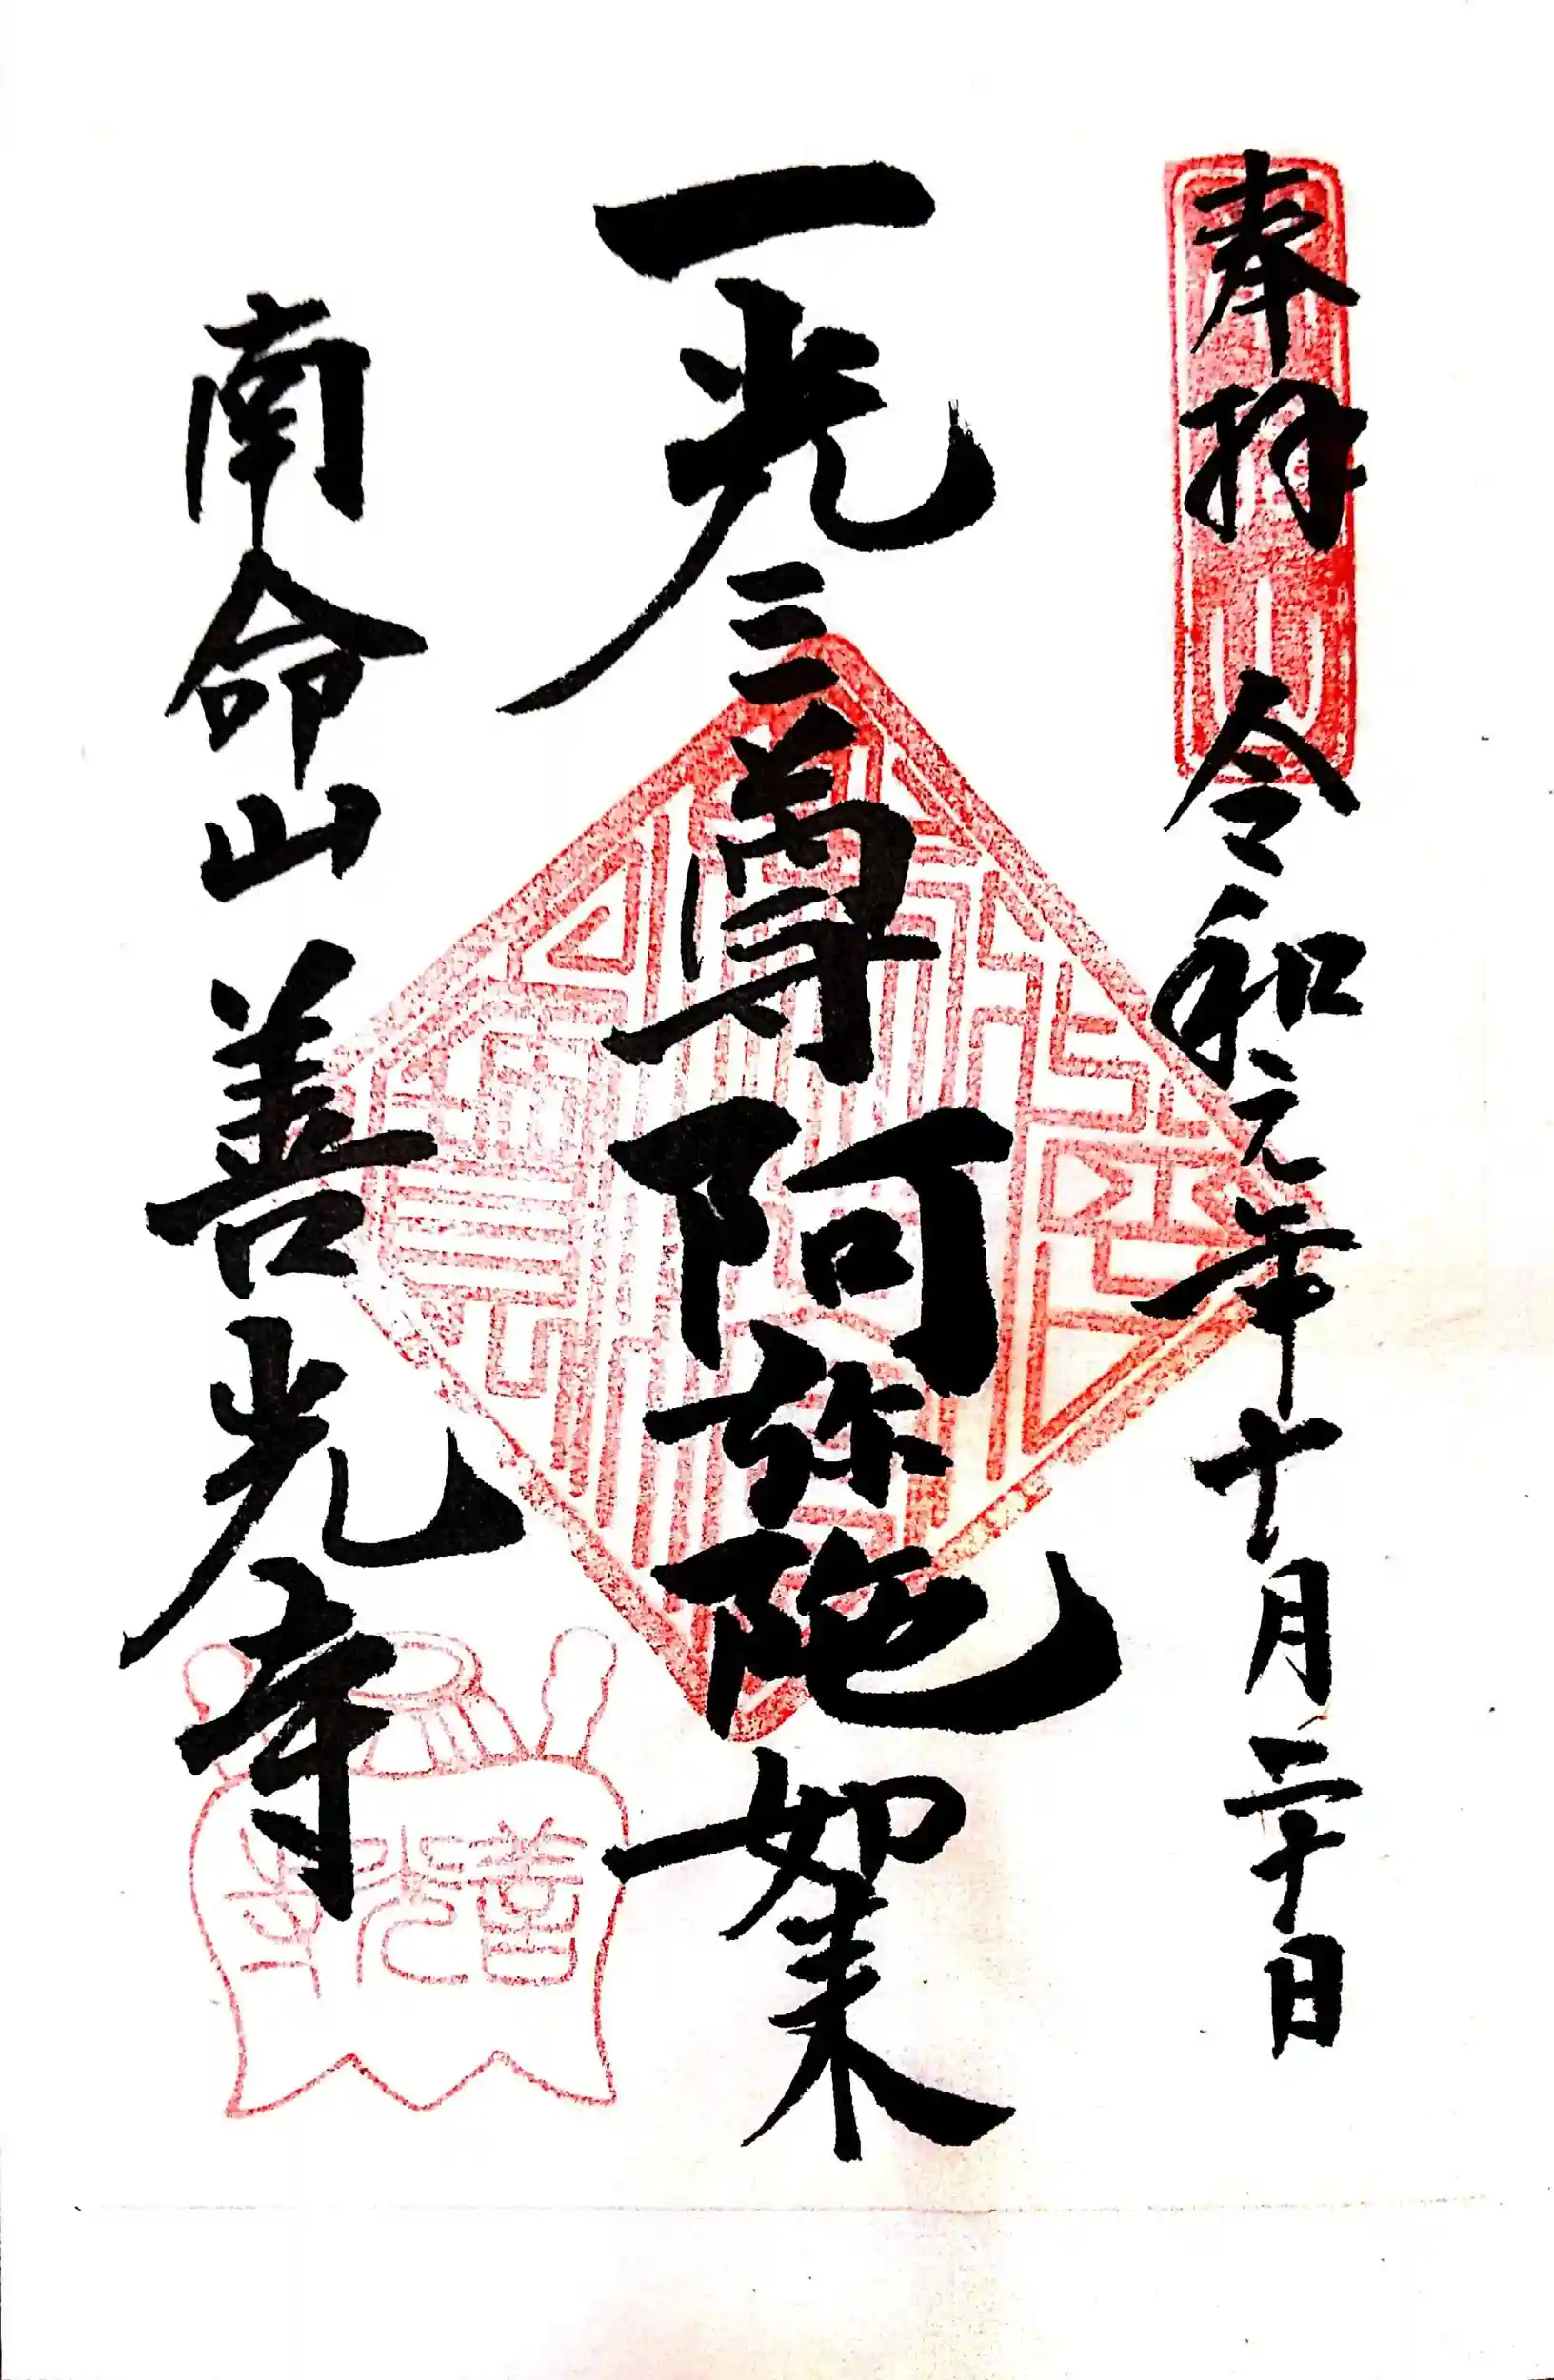 奉拝 令和元年十月二十日
一光三尊阿弥陀如来
南命山 善光寺
善光寺